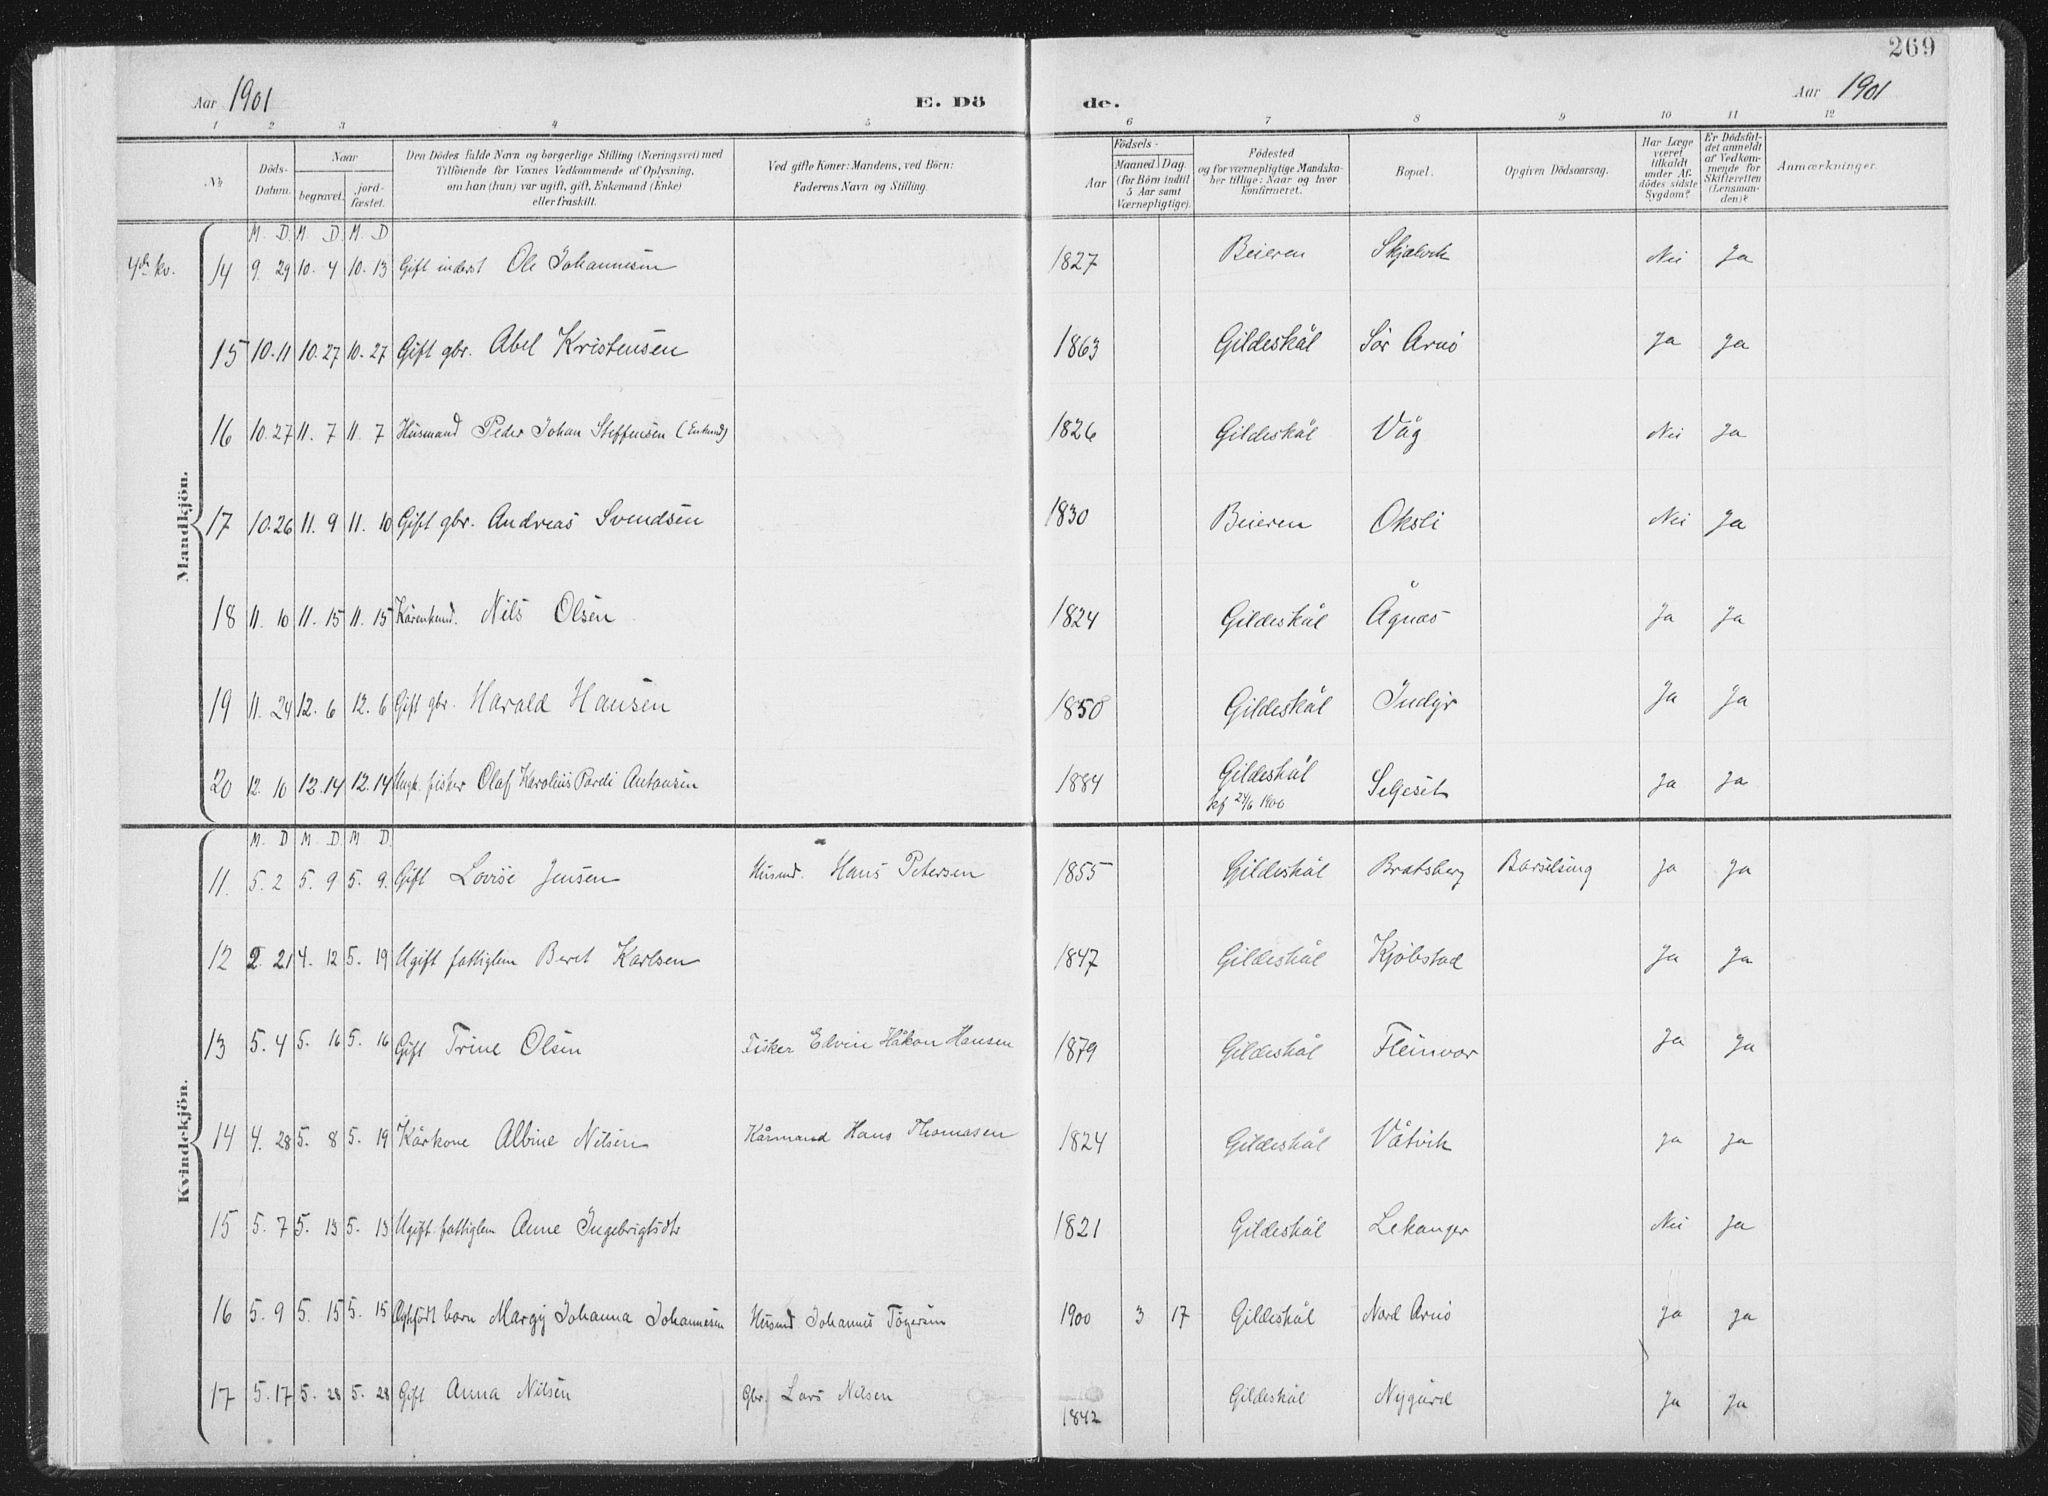 269
Aar 1901 E. Dö de. Aar 1901
1 2 3 4 5 6 7 8 9 10 11 12
№ Döds-Datum. Naar begravet. jord-fæstet. Den Dödes fulde Navn og borgerlige Stilling (Næringsvei) med Tilföiende for Voxnes Vedkommende af Oplysning, om han (hun) var ugift, gift, Enkemand (Enke) eller fraskilt. Ved gifte Koner: Mandens, ved Börn: Faderens Navn og Stilling. Födsels- Aar Maaned Dag. (for Börn indtil 5 Aar samt Værnepligtige). Födested og for værnepligtige Mandskaber tillige: Naar og hvor konfirmeret. Bopæl. Opgiven Dödsaarsag. Har Læge været tilkaldt under Afdödes sidste Sygdom? Er Dödsfaldet anmeldt af Vedkommende for Skifteretten (Lensmanden)? Anmærkninger.
Mandkjön.
M. D. M D. M. D
4de kv. 14 9. 29 10. 4 10. 13 Gift inderst Ole Johannesen 1827 Beieren Skjælvik Nei Ja
15 10. 11 10. 27 10. 27 Gift gbr. Abel Kristensen 1863 Gildeskål Sör Arnö Ja Ja
16 10. 27 11. 7 11. 7 Husmand Peder Johan Steffensen (Enkmd) 1826 Gildeskål Våg Nei Ja
17 10. 26 11. 9 11. 10 Gift gbr. Andreas Svendsen 1830 Beieren Oksli Nei Ja
18 11. 10 11. 15 11. 15 Kårenkmd. Nils Olsen 1824 Gildeskål Ågnæs Ja Ja
19 11. 24 12. 6 12. 6 Gift gbr. Harald Hansen 1850 Gildeskål Indyr Ja Ja
20 12. 10 12. 14 12. 14 Ungk. fisker Olaf Karolius Pardi Antonsen 1884 Gildeskål Seljeset Ja Ja
kf 24/6 1900
Kvindekjön.
M. D M. D. M D.
11. 5. 2 5. 9 5. 9. Gift Lovise Jensen Husmd. Hans Petersen 1855 Gildeskål Bratsberg Barselseng Ja Ja
12 2. 21 4. 12 5. 19 Ugift fattiglem Beret Karlsen 1847 Gildeskål Kjöbstad Ja Ja
13 5. 4 5. 16 5. 16 Gift Trine Olsen Fisker Edvin Håkon Hansen 1879 Gildeskål Fleinvær Ja Ja
14 4. 28 5. 8 5. 19 Kårkone Albine Nilsen Kårmand Hans Thomasen 1824 Gildeskål Våtvik Ja Ja
15 5. 7 5. 13 5. 13 Ugift fattiglem Anne Ingebrigtsdtr 1821 Gildeskål Lekanger Nei Ja
16 5. 9 5. 15 5. 15 Ægtefödt barn Margij Johanna Johannesen Husmd Johannes Tögersen 1900 3 17 Gildeskål Nord Arnö Ja Ja
17 5. 17 5. 28 5. 28 Gift Anna Nilsen Gbr. Lars Nilsen 1842 Gildeskål Nygård Ja Ja